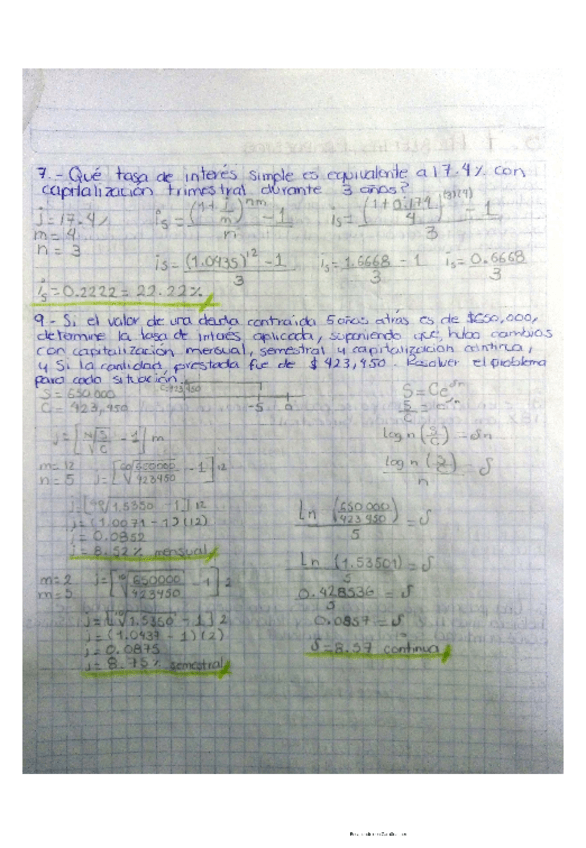 7.- Qué tasa de interés simple es equivalente a 17.4% con
capitalización trimestral durante 3 años?
j = 17.4%
m = 4
n = 3
is = ((1 + j/m)^nm - 1)/n
is = ((1 + 0.174/4)^(3)(4) - 1)/3
is = ((1.0435)^12 - 1)/3
is = 1.6668 - 1/3
is = 0.6668/3
is = 0.2222 = 22.22%
9.- Si el valor de una deuda contraida 5 años atrás es de $650,000,
determine la tasa de interés aplicada, suponiendo que hubo cambios
con capitalización mensual, semestral y capitalización continua,
y Si la cantidad prestada fue de $423,450. Resolver el problema
para cada situación.
S = 650 000
C = 423,450
-5 0
j = [ nm√(S/C) - 1 ] m
m = 12
n = 5
j = [ 60√(650000/423450) - 1 ] 12
j = [ 60√1.5350 - 1 ] 12
j = (1.0071 - 1)(12)
j = 0.0852
j = 8.52% mensual
m = 2
m = 5
j = [ 10√(650000/423450) - 1 ] 2
j = [ 10√1.5350 - 1 ] 2
j = (1.0437 - 1)(2)
j = 0.0875
j = 8.75% semestral
S = Ce^δn
S/C = e^δn
log n (S/C) = δn
log n (S/C)/n = δ
Ln (650 000/423 450)/5 = δ
Ln (1.53501)/5 = δ
0.428536/5 = δ
0.0857 = δ
δ = 8.57 continua